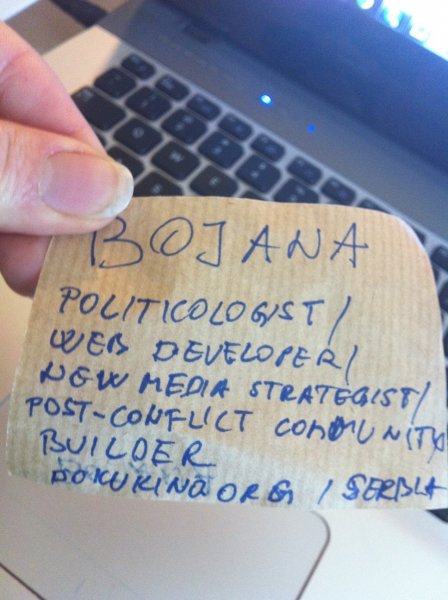 BOJANA
POLITICOLOGIST/
WEB DEVELOPER/
NEW MEDIA STRATEGIST/
POST-CONFLICT COMMUNITY
BUILDER
DOKUKINO.ORG / SERBIA